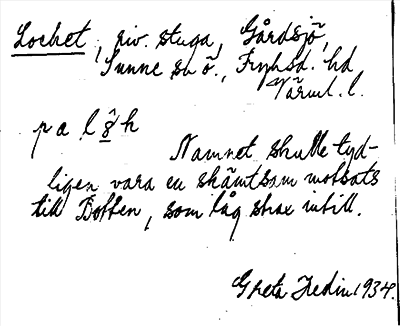 Locket, riv. stuga, Gårdsjö,
Sunne sn ö., Fryksd. hd
Värml. l.
Namnet skulle tyd-
ligen vara en skämtsam motsats
till Botten, som låg strax intill.
Greta Hedin 1934.